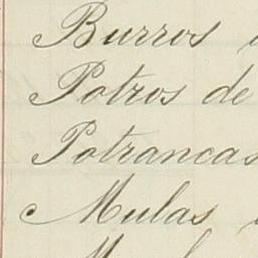 Burros
Potros de
Potrancas
Mulas